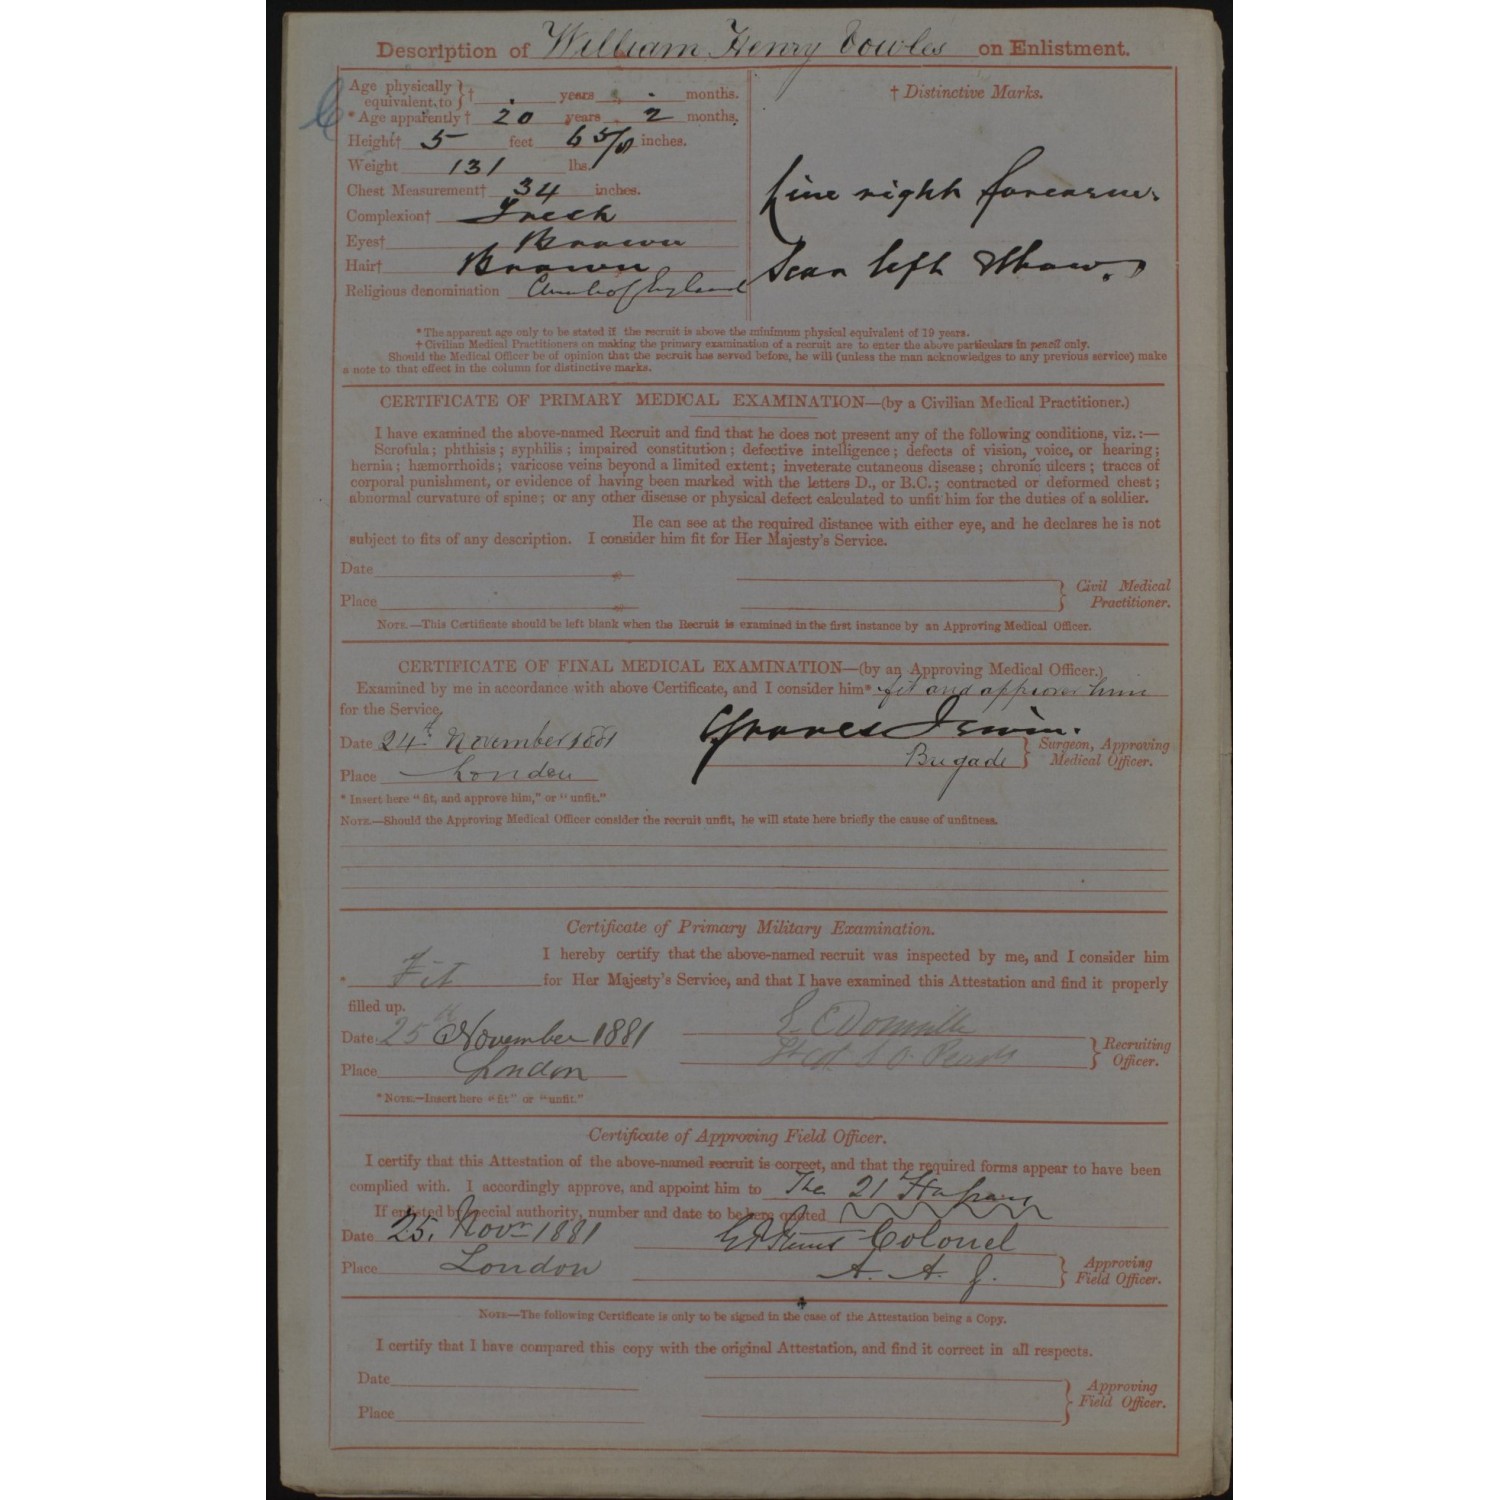 Description of William Henry Cowles on Enlistment.
Age physically equivalent to † . years . months.
* Age apparently † 20 years 2 months.
Height† 5 feet 6 5/8 inches.
Weight 131 lbs.
Chest Measurement† 34 inches.
Complexion† Fresh
Eyes† Brown
Hair† Brown
Religious denomination Church of England
† Distinctive Marks.
right forearm.
Scar left
* The apparent age only to be stated if the recruit is above the minimum physical equivalent of 19 years.
† Civilian Medical Practitioners on making the primary examination of a recruit are to enter the above particulars in pencil only.
Should the Medical Officer be of opinion that the recruit has served before, he will (unless the man acknowledges to any previous service) make
a note to that effect in the column for distinctive marks.
CERTIFICATE OF PRIMARY MEDICAL EXAMINATION—(by a Civilian Medical Practitioner.)
I have examined the above-named Recruit and find that he does not present any of the following conditions, viz.:—
Scrofula; phthisis; syphilis; impaired constitution; defective intelligence; defects of vision, voice, or hearing;
hernia; hæmorrhoids; varicose veins beyond a limited extent; inveterate cutaneous disease; chronic ulcers; traces of
corporal punishment, or evidence of having been marked with the letters D., or B.C.; contracted or deformed chest;
abnormal curvature of spine; or any other disease or physical defect calculated to unfit him for the duties of a soldier.
He can see at the required distance with either eye, and he declares he is not
subject to fits of any description. I consider him fit for Her Majesty's Service.
Date
Place
Civil Medical Practitioner.
NOTE.—This Certificate should be left blank when the Recruit is examined in the first instance by an Approving Medical Officer.
CERTIFICATE OF FINAL MEDICAL EXAMINATION—(by an Approving Medical Officer.)
Examined by me in accordance with above Certificate, and I consider him* fit and approve him
for the Service.
Date 24th November 1881
Graves Irwin.
Place London
Brigade
Surgeon, Approving Medical Officer.
* Insert here "fit, and approve him," or "unfit."
NOTE.—Should the Approving Medical Officer consider the recruit unfit, he will state here briefly the cause of unfitness.
Certificate of Primary Military Examination.
I hereby certify that the above-named recruit was inspected by me, and I consider him
* Fit for Her Majesty's Service, and that I have examined this Attestation and find it properly
filled up.
Date 25th November 1881
Place London
Recruiting Officer.
* NOTE.—Insert here "fit" or "unfit."
Certificate of Approving Field Officer.
I certify that this Attestation of the above-named recruit is correct, and that the required forms appear to have been
complied with. I accordingly approve, and appoint him to The 21 Hussars
If enlisted by special authority, number and date to be here quoted
Date 25. Novr 1881
Colonel
Place London
A. A. G.
Approving Field Officer.
NOTE—The following Certificate is only to be signed in the case of the Attestation being a Copy.
I certify that I have compared this copy with the original Attestation, and find it correct in all respects.
Date
Place
Approving Field Officer.